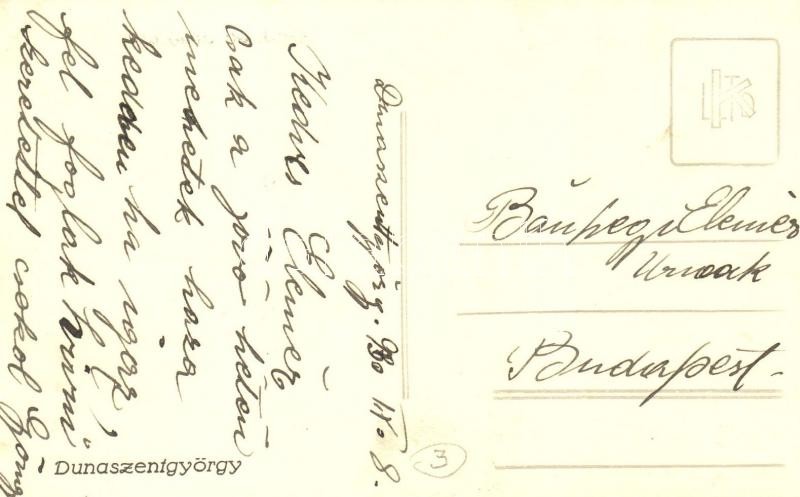 Dunaszentgyörgy. 940 IV. 8.
Kedves Elemér
Csak a jövö héten
mehetek haza
kedden ha igaz,
fel foglak hivni
Szeretettel csokol Gyöngyi
Elemér
Urnak
Budapest-
3
Dunaszentgyörgy